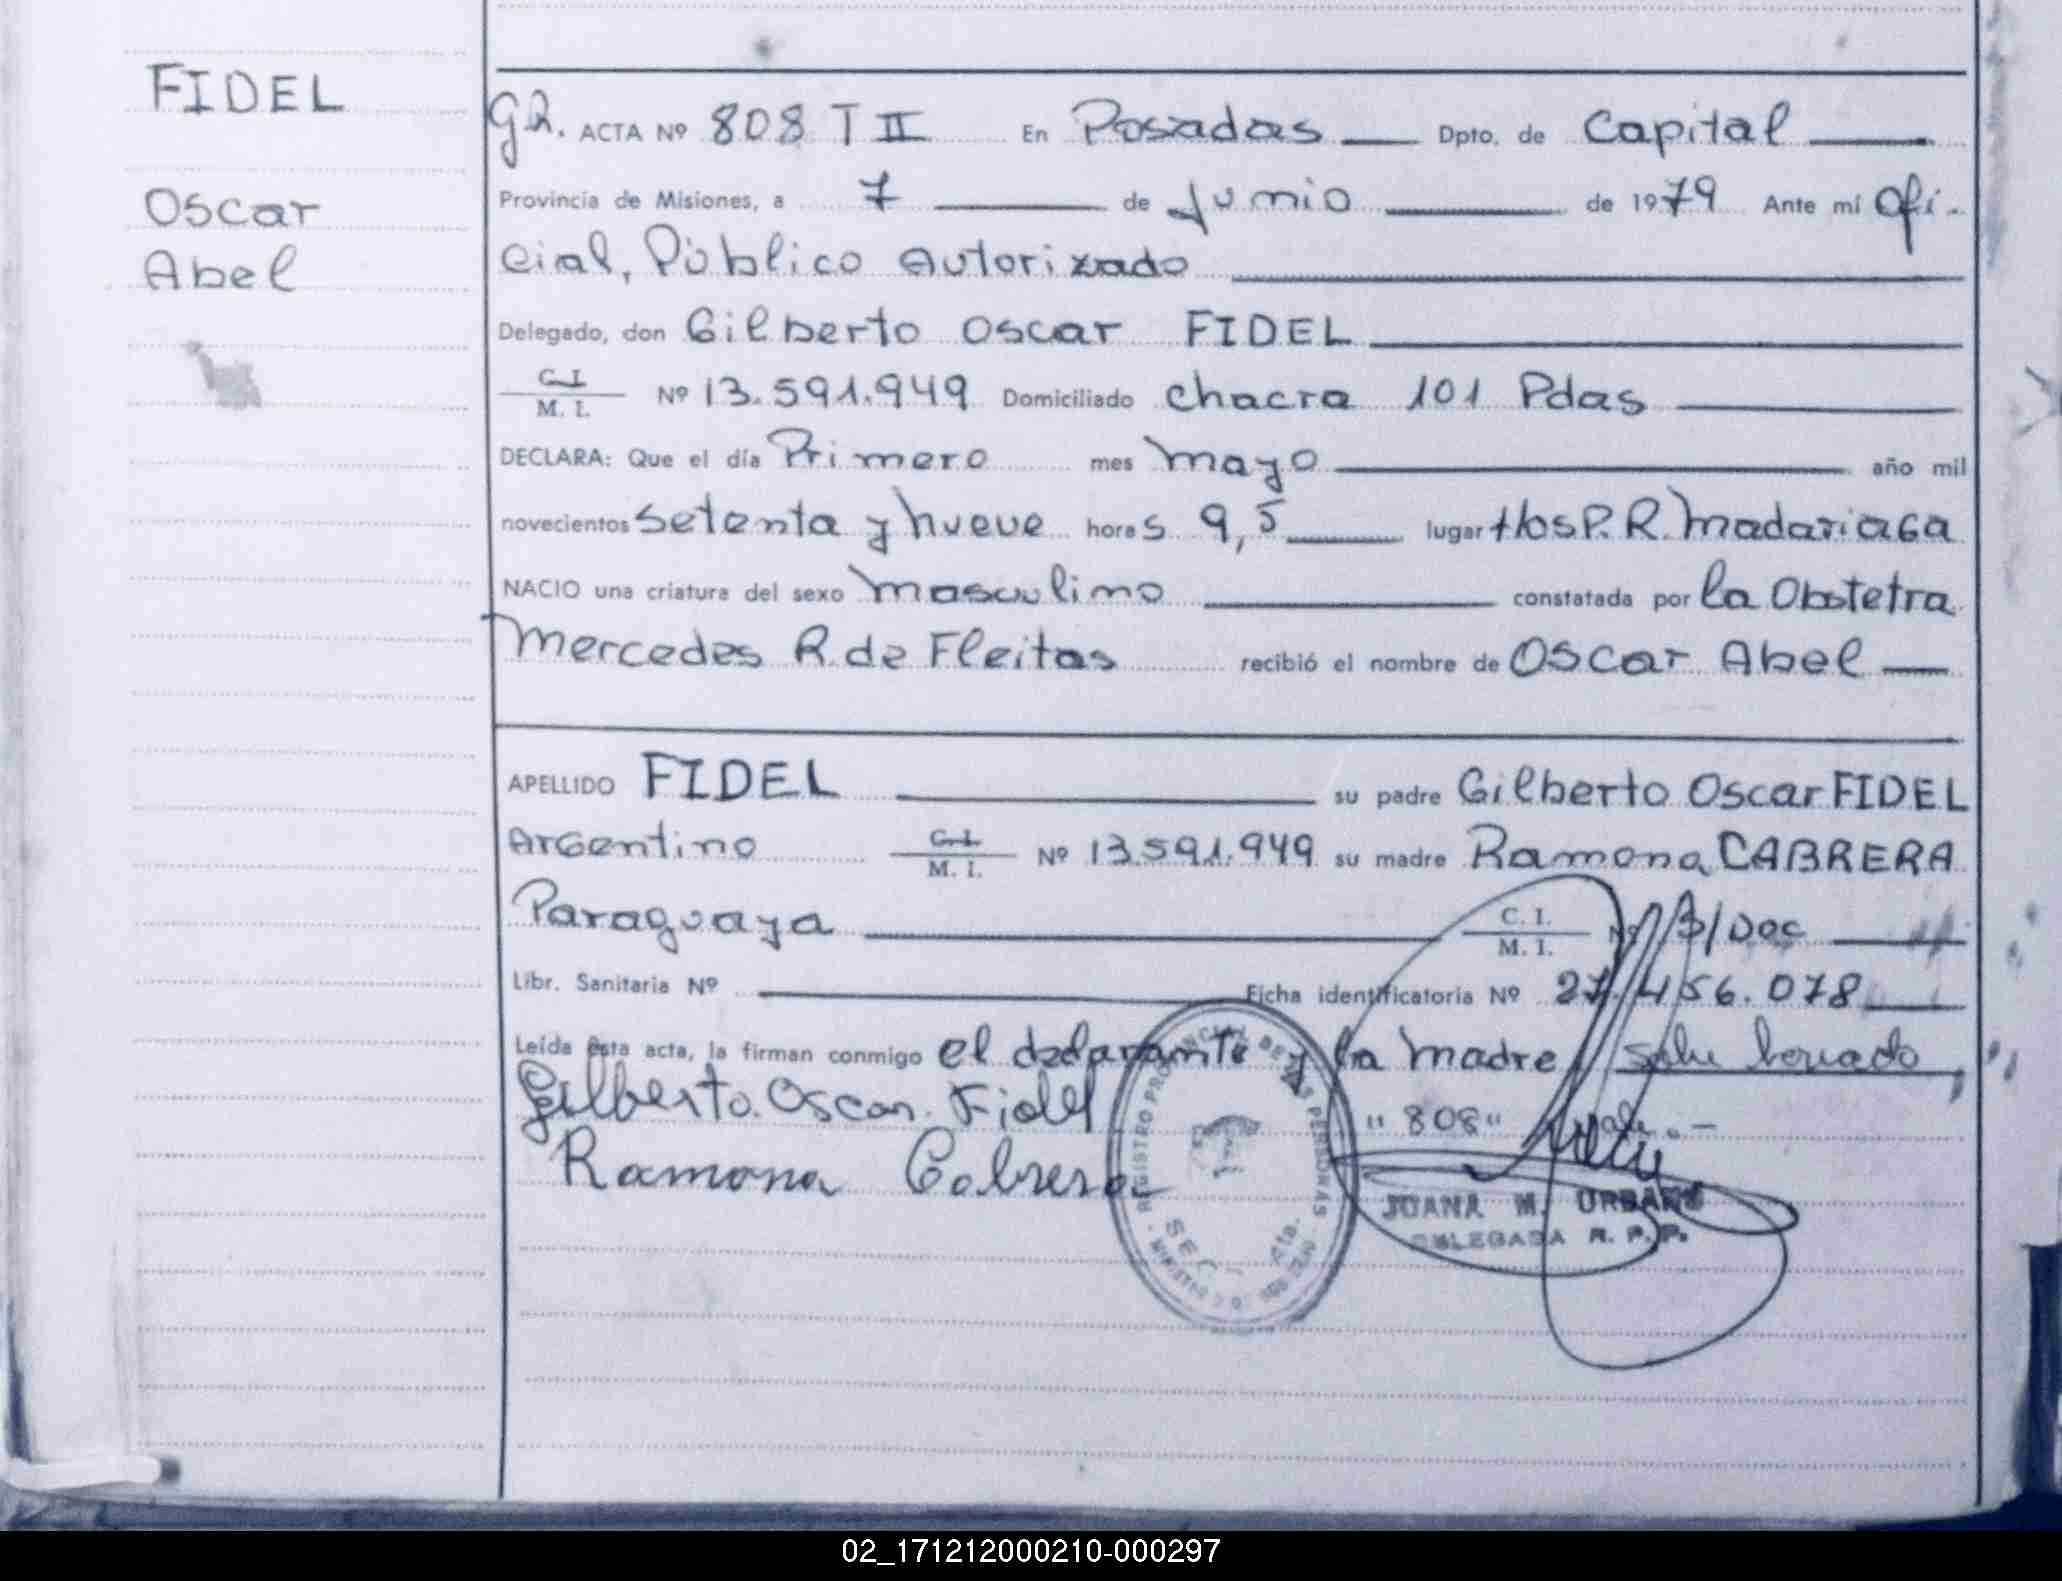 FIDEL
Oscar
Abel
Gh. ACTA Nº 808 T II En Posadas Dpto. de Capital
Provincia de Misiones, a 7 de Junio de 1979 Ante mí Ofi-
cial, Público Autorizado
Delegado, don Gilberto Oscar FIDEL
C.I. M. I. Nº 13.591.949 Domiciliado Chacra 101 Pdas
DECLARA: Que el día Primero mes mayo año mil
novecientos setenta y nueve horas 9,5 lugar Hosp. R. Madariaga
NACIO una criatura del sexo masculino constatada por la Obstetra
Mercedes R. de Fleitas recibió el nombre de Oscar Abel
APELLIDO FIDEL su padre Gilberto Oscar FIDEL
Argentino C.I. M. I. Nº 13.591.949 su madre Ramona CABRERA
Paraguaya C. I. M. I. Nº S/Doc
Libr. Sanitaria Nº Ficha identificatoria Nº 27.456.078
Leída ésta acta, la firman conmigo el declarante y la madre sobre borrado
Gilberto. Oscar. Fidel "808" vale.-
Ramona Cabrera
REGISTRO PROVINCIAL DE LAS PERSONAS
JUANA M. URBANO
DELEGADA R. P. P.
02_171212000210-000297